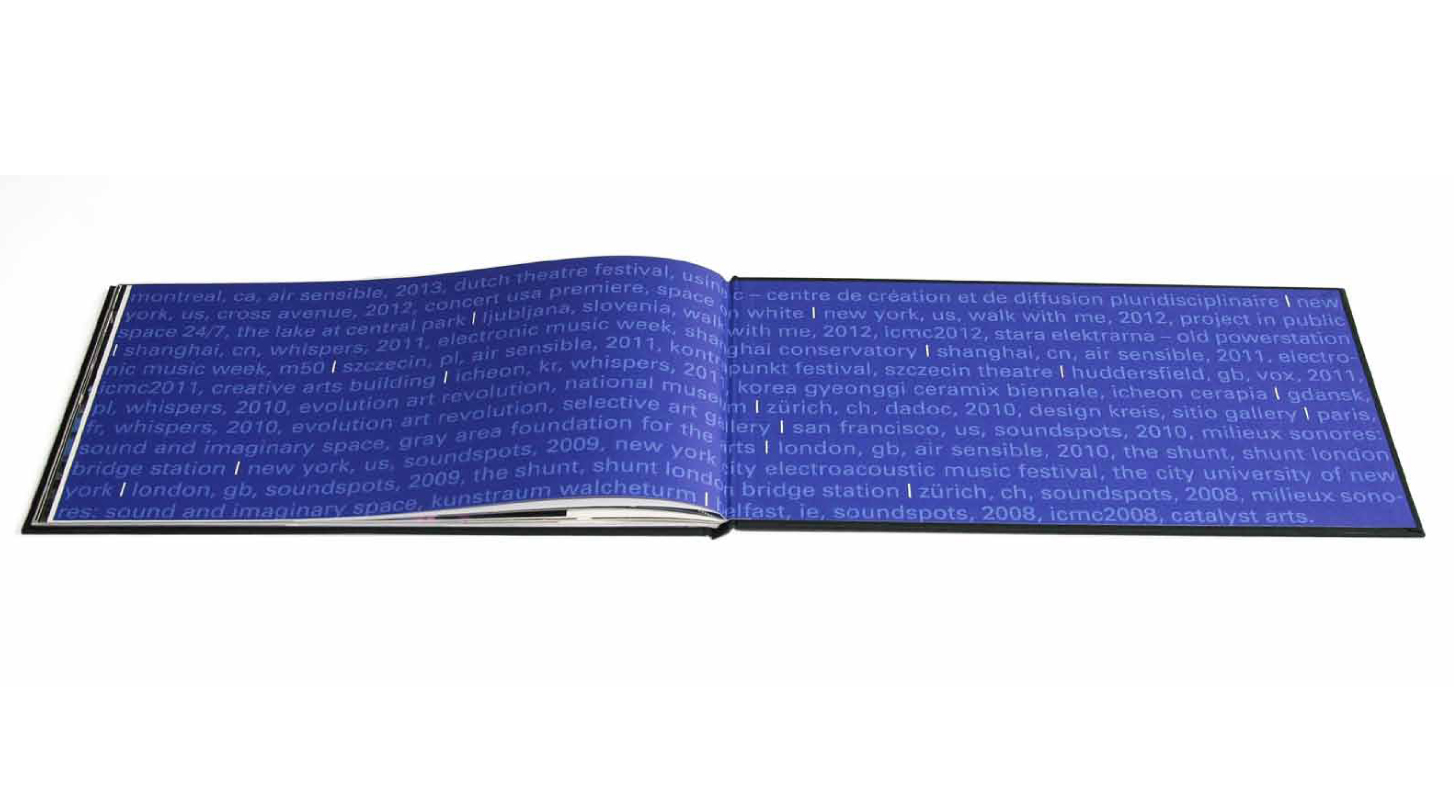 montreal, ca, air sensible, 2013, dutch theatre festival, usine c – centre de création et de diffusion pluridisciplinaire | new
york, us, cross avenue, 2012, concert usa premiere, space white | new york, us, walk with me, 2012, project in public
space 24/7, the lake at central park | ljubljana, slovenia, walk with me, 2012, icmc2012, stara elektrarna – old powerstation
| shanghai, cn, whispers, 2011, electronic music week, shanghai conservatory | shanghai, cn, air sensible, 2011, electro-
nic music week, m50 | szczecin, pl, air sensible, 2011, kontrapunkt festival, szczecin theatre | huddersfield, gb, vox, 2011,
icmc2011, creative arts building | icheon, kr, whispers, 2011, korea gyeonggi ceramix biennale, icheon cerapia | gdansk,
pl, whispers, 2010, evolution art revolution, national museum | zürich, ch, dadoc, 2010, design kreis, sitio gallery | paris,
fr, whispers, 2010, evolution art revolution, selective art gallery | san francisco, us, soundspots, 2010, milieux sonores:
sound and imaginary space, gray area foundation for the arts | london, gb, air sensible, 2010, the shunt, shunt london
bridge station | new york, us, soundspots, 2009, new york city electroacoustic music festival, the city university of new
york | london, gb, soundspots, 2009, the shunt, shunt london bridge station | zürich, ch, soundspots, 2008, milieux sono-
res: sound and imaginary space, kunstraum walcheturm | belfast, ie, soundspots, 2008, icmc2008, catalyst arts.